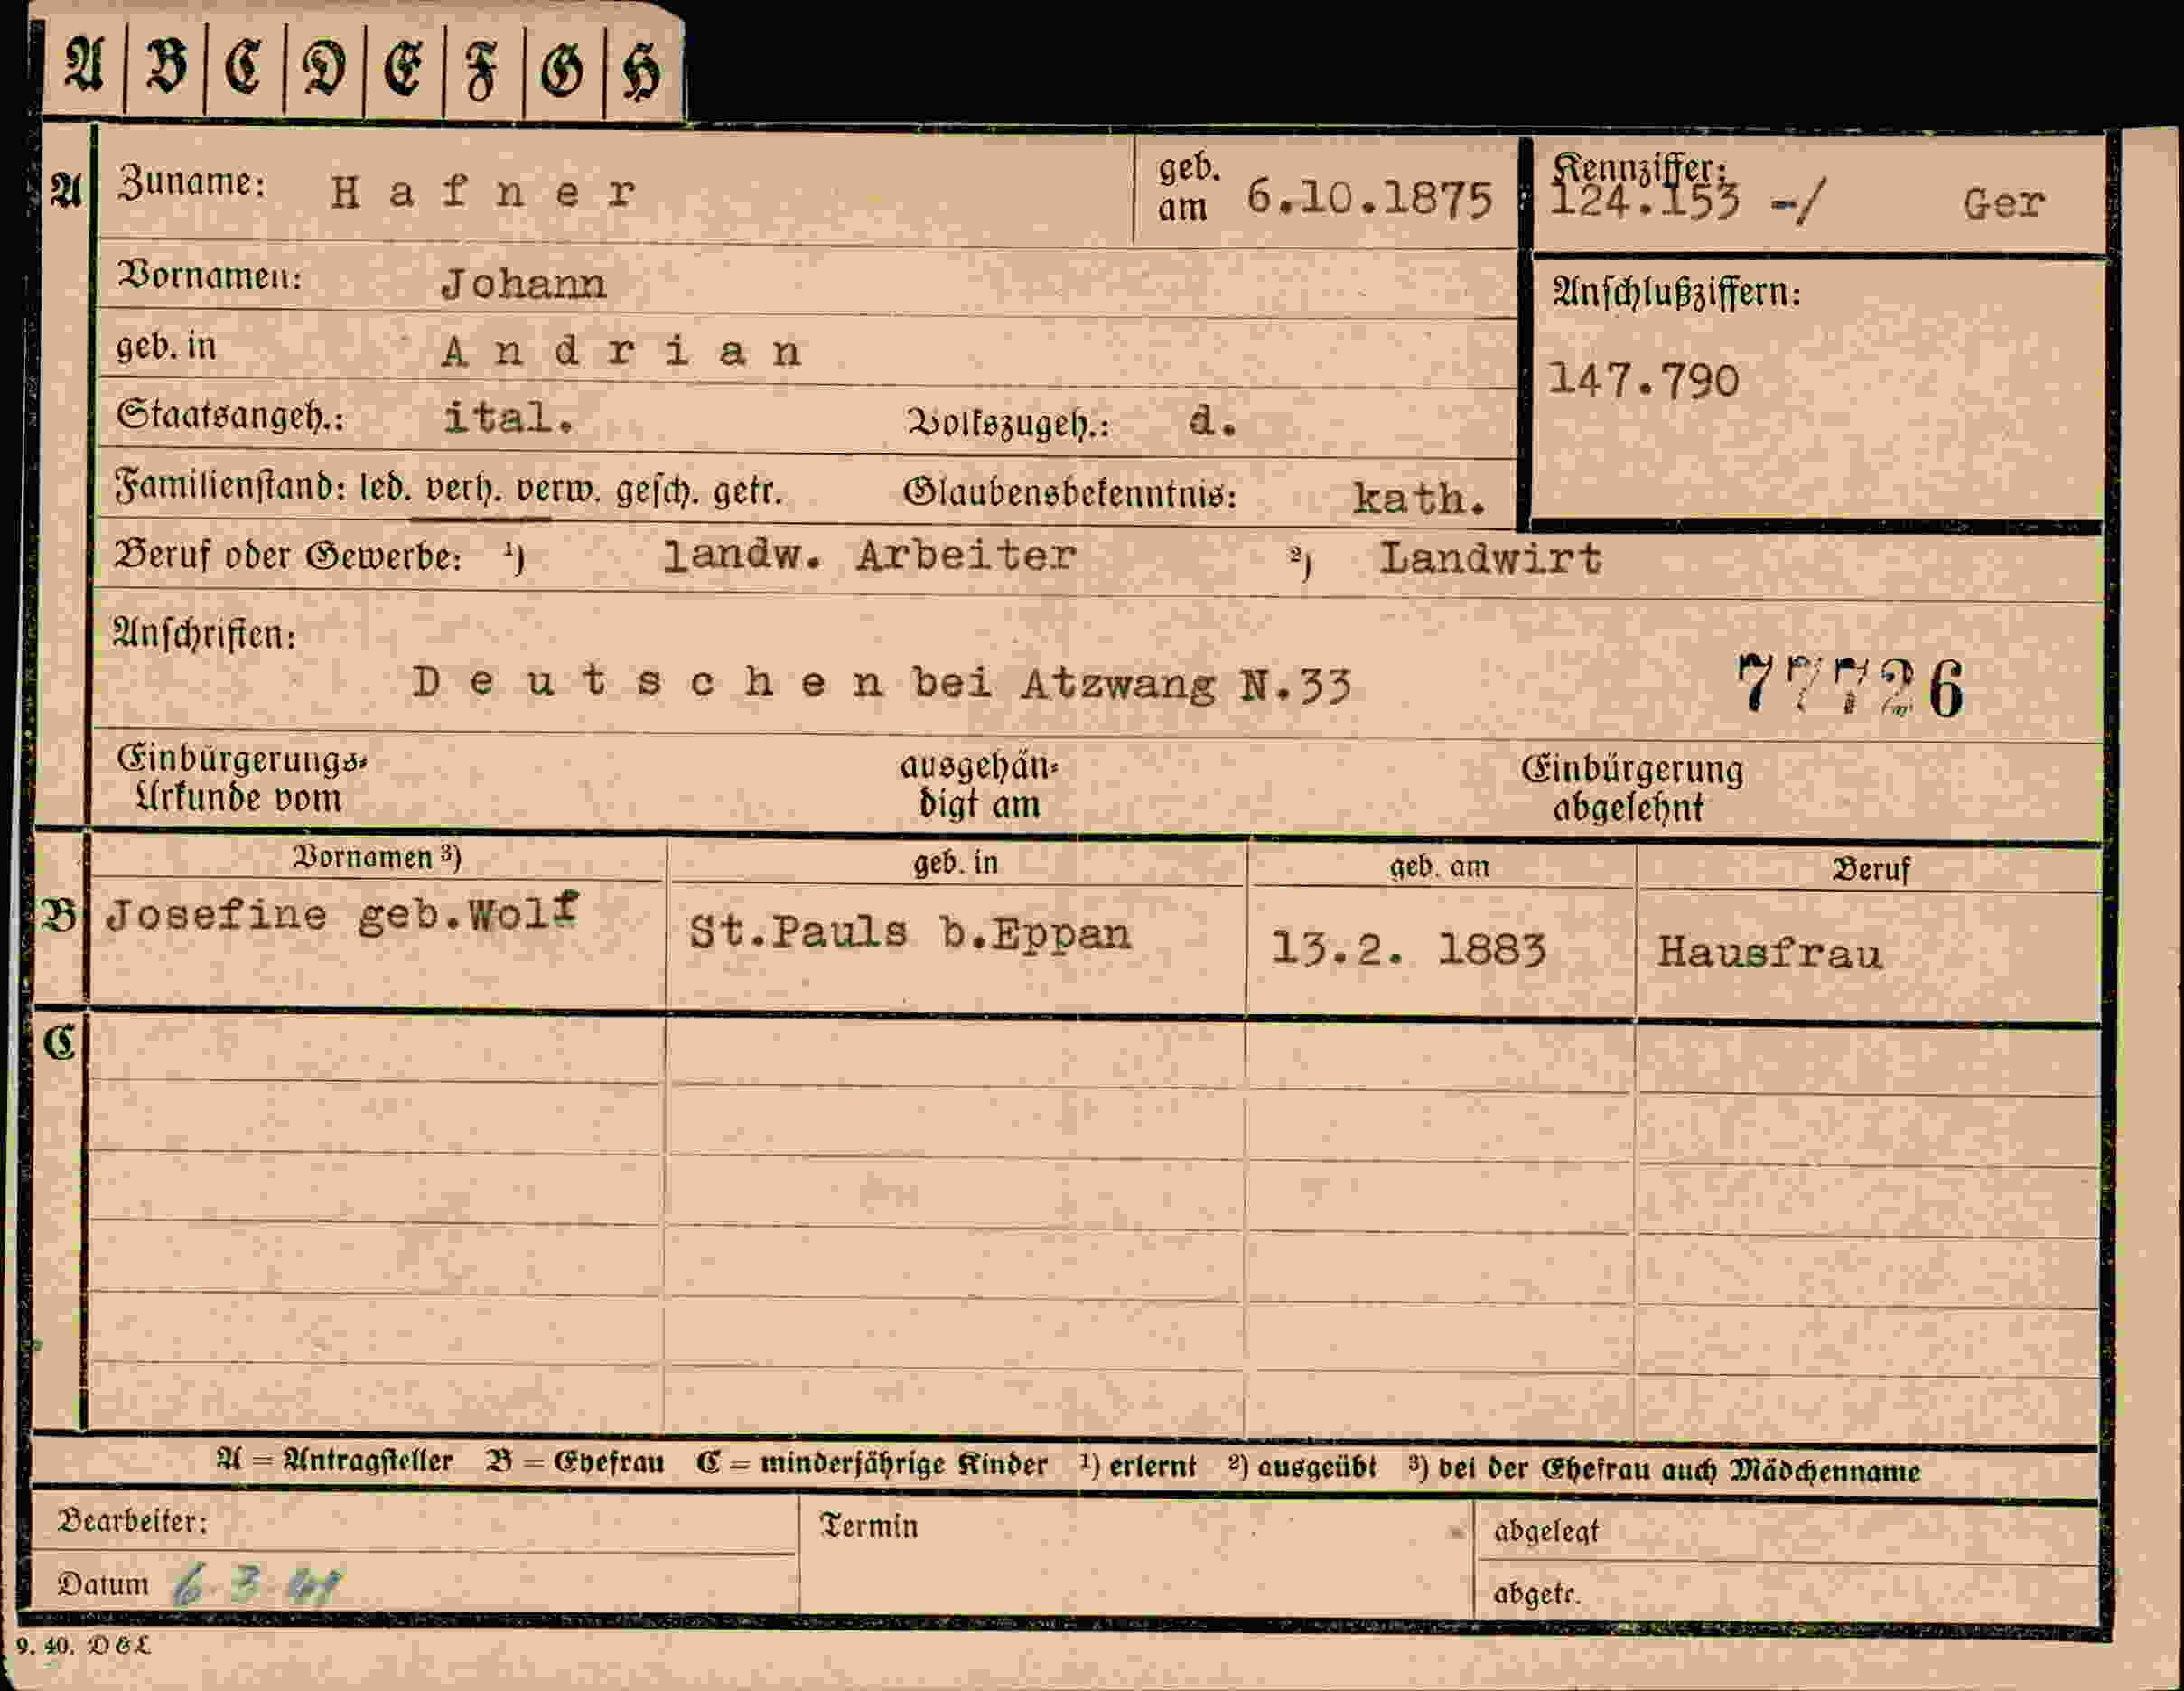 A B C D E F G H
A Zuname: Hafner geb. am 6.10.1875 Kennziffer: 124.153 -/ Ger
Vornamen: Johann Anschlußziffern:
geb. in Andrian 147.790
Staatsangeh.: ital. Volkszugeh.: d.
Familienstand: led. verh. verw. gesch. getr. Glaubensbekenntnis: kath.
Beruf oder Gewerbe: ¹) landw. Arbeiter ²) Landwirt
Anschriften:
Deutschen bei Atzwang N.33 77726
Einbürgerungs- ausgehän- Einbürgerung
Urkunde vom digt am abgelehnt
Vornamen ³) geb. in geb. am Beruf
B Josefine geb.Wolf St.Pauls b.Eppan 13.2. 1883 Hausfrau
C
A = Antragsteller B = Ehefrau C = minderjährige Kinder ¹) erlernt ²) ausgeübt ³) bei der Ehefrau auch Mädchenname
Bearbeiter: Termin abgelegt
Datum 6 3 41 abgetr.
9. 40. D & L